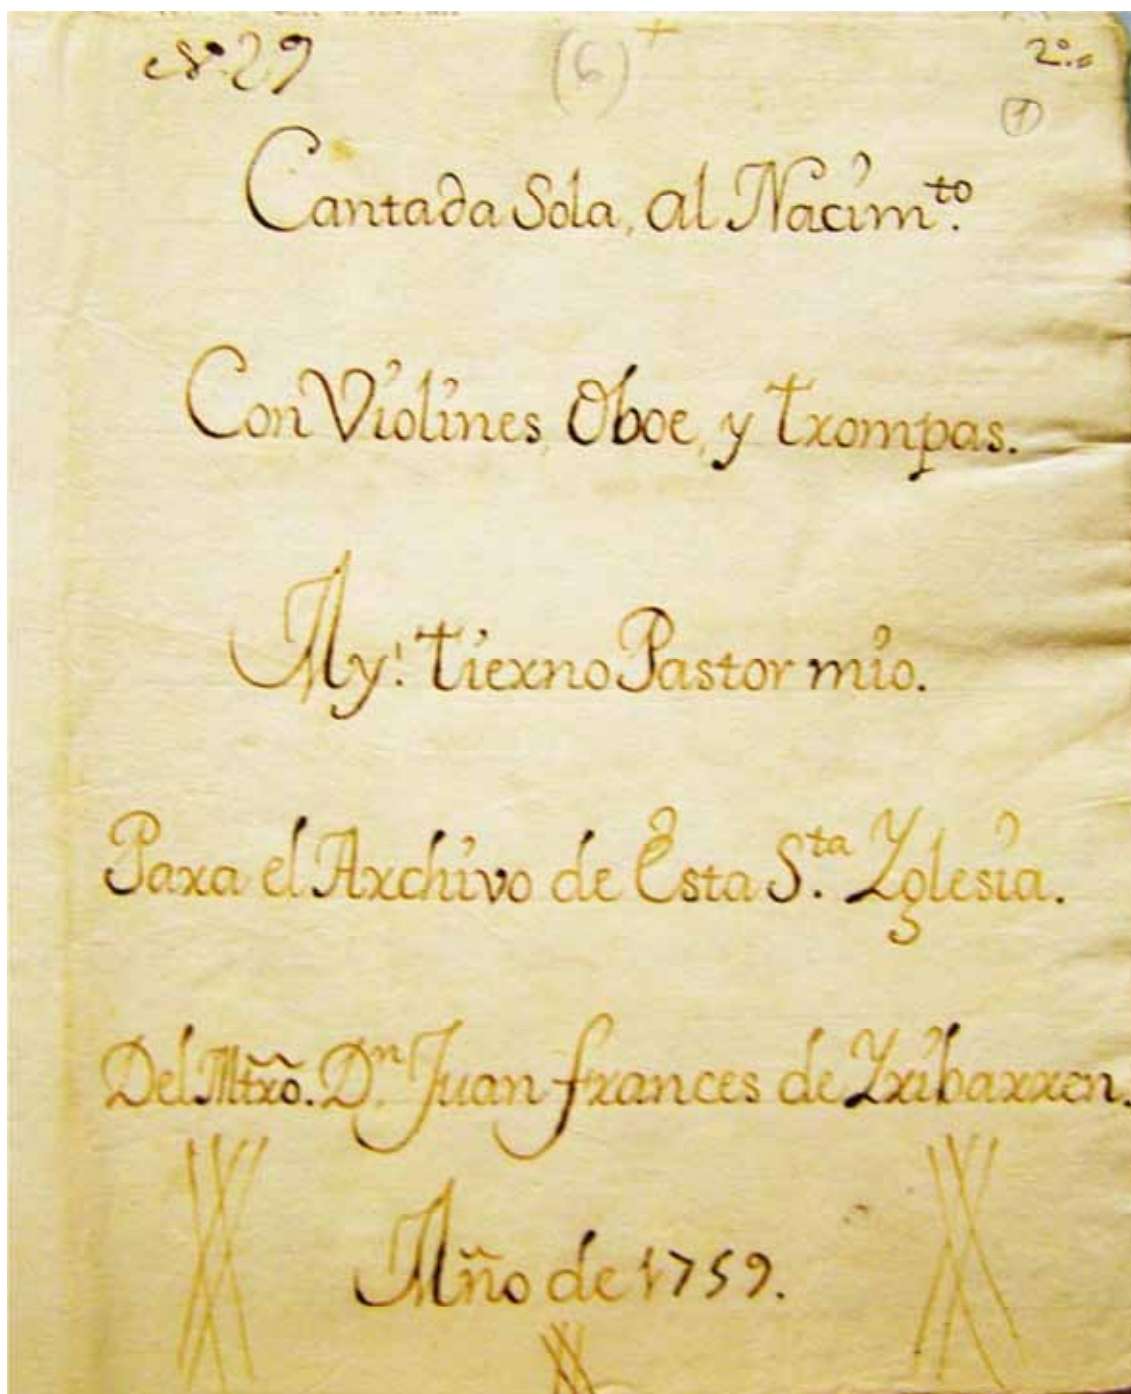 Nº 29 (6) + 2º.
1
Cantada Sola, al Nacim.to
Con Violines, Oboe, y trompas.
Ay! tierno Pastor mio.
Para el Archivo de Esta S.ta Yglesia.
Del Mtrõ. D.n Juan frances de Yribarren.
Año de 1759.